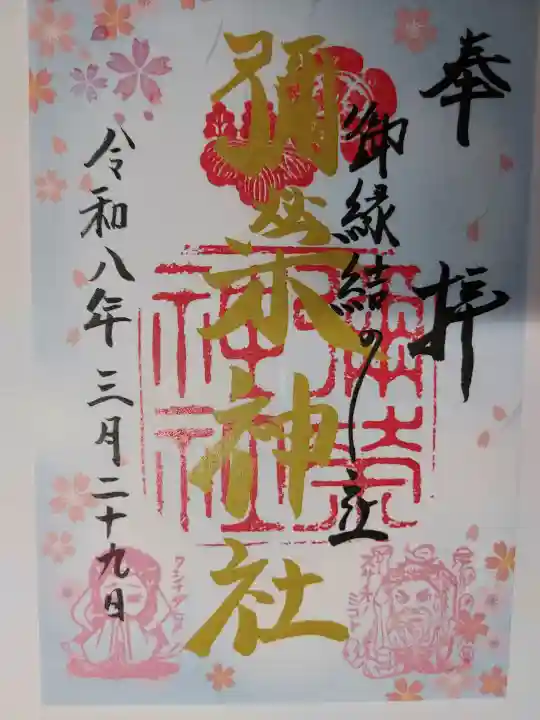 奉拝
御縁結びの社
彌栄神社
令和八年三月二十九日
クシナダヒメ
スサオノミコト